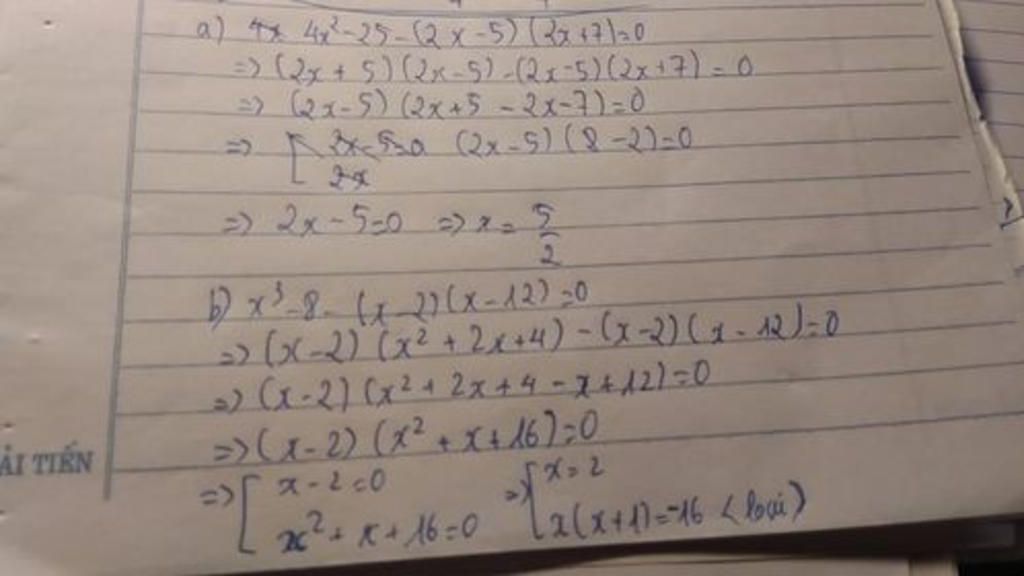 a) 4x 4x² - 25 - (2x - 5) (2x + 7) = 0
=> (2x + 5) (2x - 5) - (2x - 5) (2x + 7) = 0
=> (2x - 5) (2x + 5 - 2x - 7) = 0
=> [ 2x - 5 = 0 (2x - 5) (8 - 2) = 0
2x
=> 2x - 5 = 0 => x = 5/2
b) x³ - 8 - (x - 2) (x - 12) = 0
=> (x - 2) (x² + 2x + 4) - (x - 2) (x - 12) = 0
=> (x - 2) (x² + 2x + 4 - x + 12) = 0
=> (x - 2) (x² + x + 16) = 0
ẢI TIẾN
=> [ x - 2 = 0 => [ x = 2
x² + x + 16 = 0 x(x + 1) = -16 < loại )